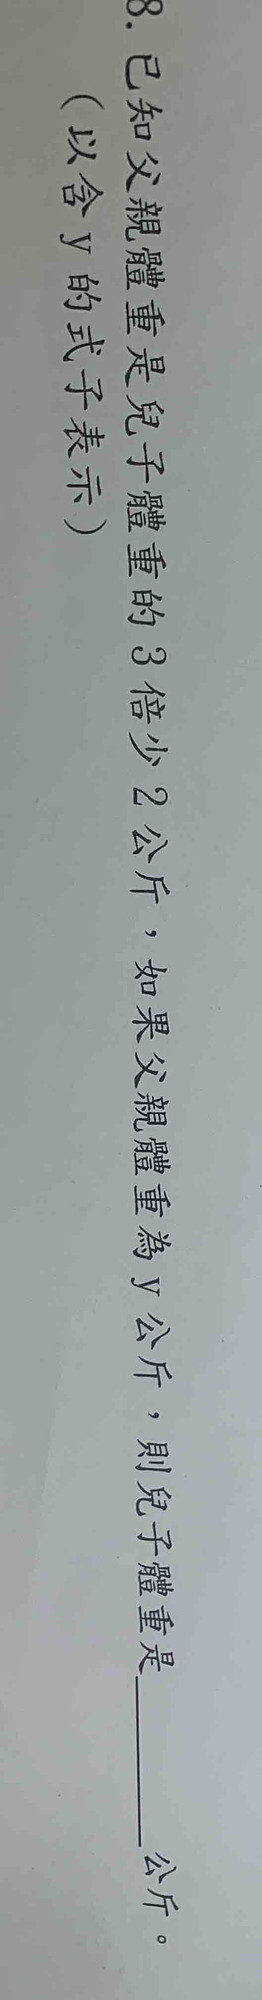 8. 已知父親體重是兒子體重的 3 倍少 2 公斤，如果父親體重為 y 公斤，則兒子體重是________公斤。
（以含 y 的式子表示）